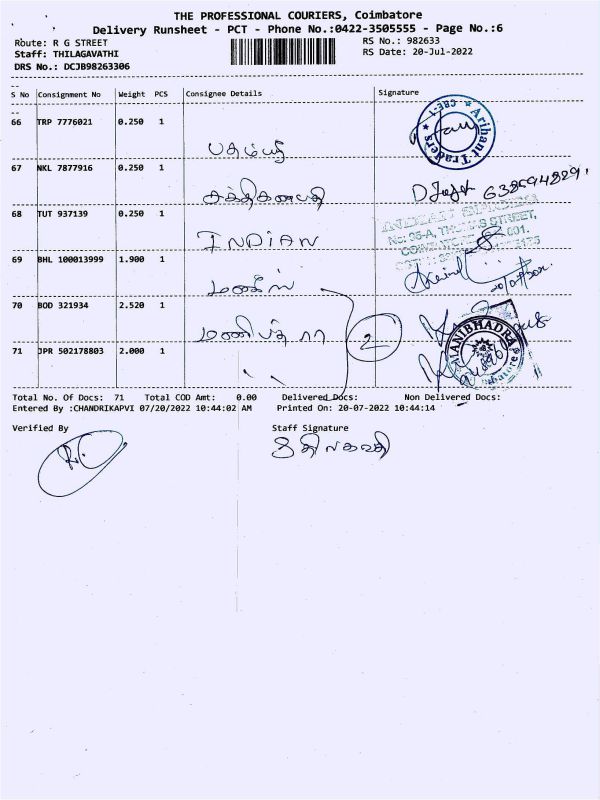 THE PROFESSIONAL COURIERS, Coimbatore
Delivery Runsheet - PCT - Phone No.:0422-3505555 - Page No.:6
Route: R G STREET
RS No.: 982633
Staff: THILAGAVATHI
RS Date: 20-Jul-2022
DRS No.: DCJB98263306
S No Consignment No Weight PCS Consignee Details Signature
66 TRP 7776021 0.250 1
Arihant Traders CBE-1
67 NKL 7877916 0.250 1
சக்திகணபதி
68 TUT 937139 0.250 1
INDIAN
69 BHL 100013999 1.900 1
70 BOD 321934 2.520 1
2
MANIBHADRA
71 JPR 502178803 2.000 1
Total No. Of Docs: 71 Total COD Amt: 0.00 Delivered Docs: Non Delivered Docs:
Entered By :CHANDRIKAPVI 07/20/2022 10:44:02 AM Printed On: 20-07-2022 10:44:14
Verified By Staff Signature
திலகவதி